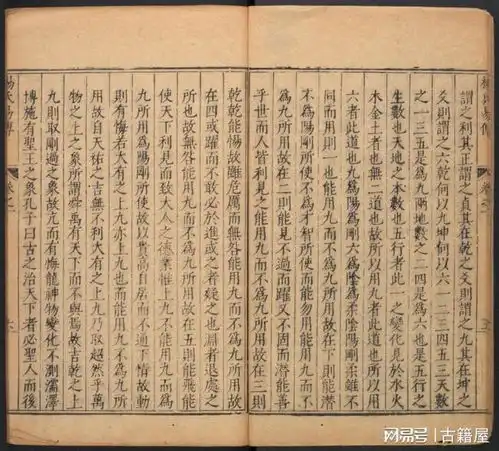 謂之利其正謂之貞其在乾之爻則謂之九其在坤之
爻則謂之六乾何以九坤何以六一二三四五三天數
之一三五是為九兩地數之二四是為六也是五行之
生數也天地之本數也五行者此一之變化見於水火
木金土者也無二道也故所以用九者此道也所以用
六者此道也九為陽為剛六為陰為柔陰陽剛柔雖不
同而用則一也能用九而不為九所用故在下則能潛
不為陽剛所使不為才智所使而能勿用能用九而不
為九所用故在二則能見不過而躍又不固而潛能善
乎世而人皆利見之能用九而不為九所用故在三則
乾乾能惕故雖危厲而無咎能用九而不為九所用故
在四或躍而不敢必於進或之者疑之也淵者退處之
所也故無咎能用九而不為九所用故在五則能飛能
使天下利見而致大人之德業惟上九不能用九而為
九所用為陽剛所使故以貴高自居而不通下情故動
則有悔若大有之上九亦上九也而能用九不為九所
用故自天祐之吉無不利大有之上九乃取超然乎萬
物之上之象所謂舜禹有天下而不與焉故吉乾之上
九則取剛過之象故亢而有悔龍神物變化不測濡澤
博施有聖王之象孔子曰古之治天下者必聖人而後
網易号|古籍屋